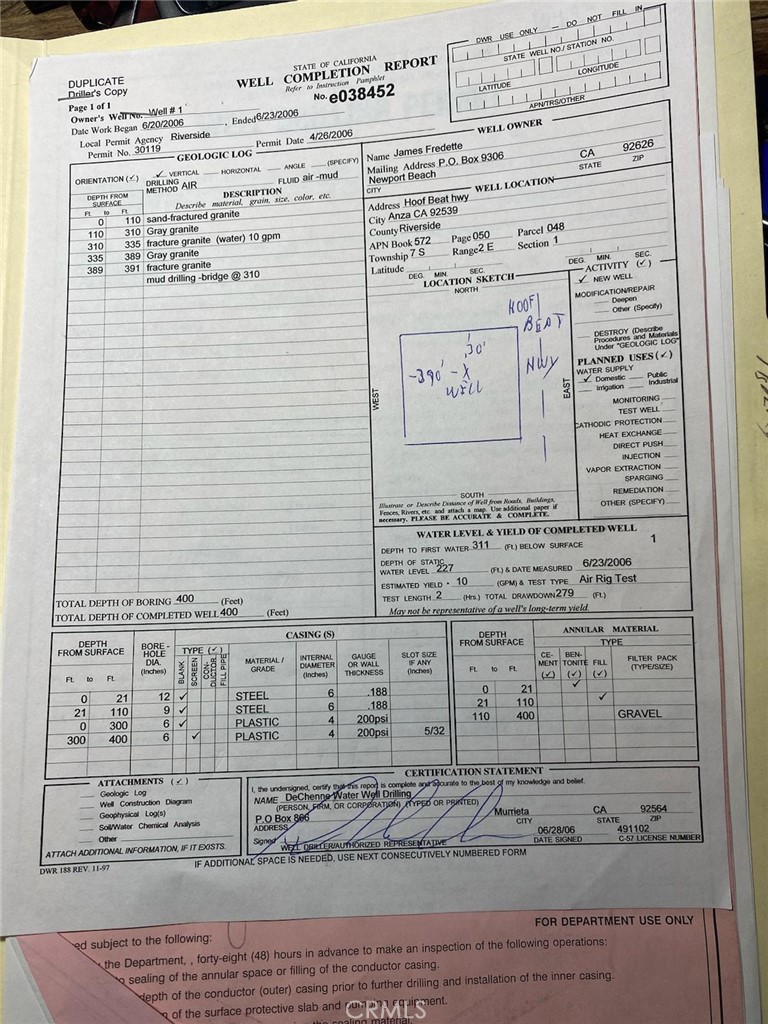 DWR USE ONLY — DO NOT FILL IN
STATE WELL NO./STATION NO.
LATITUDE
LONGITUDE
APN/TRS/OTHER
DUPLICATE
Driller's Copy
STATE OF CALIFORNIA
WELL COMPLETION REPORT
Refer to Instruction Pamphlet
No. e038452
Page 1 of 1
Owner's Well No. Well # 1
Date Work Began 6/20/2006 , Ended 6/23/2006
Local Permit Agency Riverside
Permit No. 30119 Permit Date 4/26/2006
GEOLOGIC LOG
ORIENTATION (✓) ✓ VERTICAL HORIZONTAL ANGLE (SPECIFY)
DRILLING METHOD AIR FLUID air -mud
DEPTH FROM SURFACE
Ft. to Ft.
DESCRIPTION
Describe material, grain, size, color, etc.
0 110 sand-fractured granite
110 310 Gray granite
310 335 fracture granite (water) 10 gpm
335 389 Gray granite
389 391 fracture granite
mud drilling -bridge @ 310
TOTAL DEPTH OF BORING 400 (Feet)
TOTAL DEPTH OF COMPLETED WELL 400 (Feet)
WELL OWNER
Name James Fredette
Mailing Address P.O. Box 9306
Newport Beach CA 92626
CITY STATE ZIP
WELL LOCATION
Address Hoof Beat hwy
City Anza CA 92539
County Riverside
APN Book 572 Page 050 Parcel 048
Township 7 S Range 2 E Section 1
Latitude
DEG. MIN. SEC. DEG. MIN. SEC.
LOCATION SKETCH
NORTH
HOOF
BEAT
HWY
30'
-390' - X
WELL
WEST
EAST
SOUTH
Illustrate or Describe Distance of Well from Roads, Buildings,
Fences, Rivers, etc. and attach a map. Use additional paper if
necessary. PLEASE BE ACCURATE & COMPLETE.
ACTIVITY (✓)
✓ NEW WELL
MODIFICATION/REPAIR
Deepen
Other (Specify)
DESTROY (Describe
Procedures and Materials
Under "GEOLOGIC LOG"
PLANNED USES (✓)
WATER SUPPLY
✓ Domestic Public
Irrigation Industrial
MONITORING
TEST WELL
CATHODIC PROTECTION
HEAT EXCHANGE
DIRECT PUSH
INJECTION
VAPOR EXTRACTION
SPARGING
REMEDIATION
OTHER (SPECIFY)
WATER LEVEL & YIELD OF COMPLETED WELL
DEPTH TO FIRST WATER 311 (Ft.) BELOW SURFACE 1
DEPTH OF STATIC
WATER LEVEL 227 (Ft.) & DATE MEASURED 6/23/2006
ESTIMATED YIELD • 10 (GPM) & TEST TYPE Air Rig Test
TEST LENGTH 2 (Hrs.) TOTAL DRAWDOWN 279 (Ft.)
May not be representative of a well's long-term yield.
DEPTH FROM SURFACE
Ft. to Ft.
BORE - HOLE DIA. (Inches)
CASING (S)
TYPE (✓)
BLANK
SCREEN
CON- DUCTOR
FILL PIPE
MATERIAL / GRADE
INTERNAL DIAMETER (Inches)
GAUGE OR WALL THICKNESS
SLOT SIZE IF ANY (Inches)
0 21 12 ✓ STEEL 6 .188
21 110 9 ✓ STEEL 6 .188
0 300 6 ✓ PLASTIC 4 200psi
300 400 6 ✓ PLASTIC 4 200psi 5/32
DEPTH FROM SURFACE
Ft. to Ft.
ANNULAR MATERIAL
TYPE
CE- MENT (✓)
BEN- TONITE (✓)
FILL (✓)
FILTER PACK (TYPE/SIZE)
0 21 ✓
21 110 ✓
110 400 GRAVEL
ATTACHMENTS (✓)
Geologic Log
Well Construction Diagram
Geophysical Log(s)
Soil/Water Chemical Analysis
Other
ATTACH ADDITIONAL INFORMATION, IF IT EXISTS.
CERTIFICATION STATEMENT
I, the undersigned, certify that this report is complete and accurate to the best of my knowledge and belief.
NAME DeChenne Water Well Drilling
(PERSON, FIRM, OR CORPORATION) (TYPED OR PRINTED)
P.O Box 866 Murrieta CA 92564
ADDRESS CITY STATE ZIP
Signed 06/28/06 491102
WELL DRILLER/AUTHORIZED REPRESENTATIVE DATE SIGNED C-57 LICENSE NUMBER
DWR 188 REV. 11-97
IF ADDITIONAL SPACE IS NEEDED, USE NEXT CONSECUTIVELY NUMBERED FORM
FOR DEPARTMENT USE ONLY
ed subject to the following:
the Department, , forty-eight (48) hours in advance to make an inspection of the following operations:
sealing of the annular space or filling of the conductor casing.
depth of the conductor (outer) casing prior to further drilling and installation of the inner casing.
n of the surface protective slab and pumping equipment.
the sealing material.
CRMLS